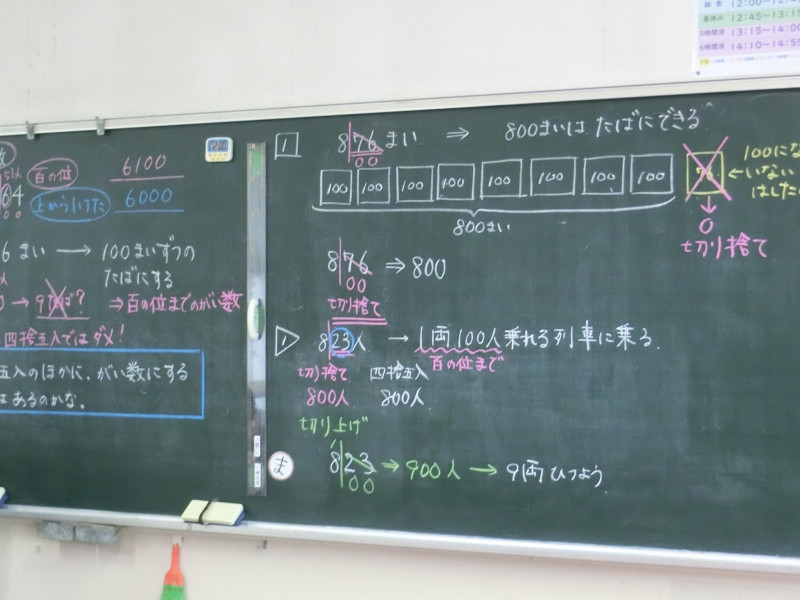 百の位 6100
上から1けた 6000
64
00
6まい → 100まいずつの
たばにする
→ 9たば? ⇒百の位までのがい数
四捨五入ではダメ!
五入のほかに、がい数にする
はあるのかな。
1 876まい ⇒ 800まいは たばにできる
00
100 100 100 100 100 100 100 100
800まい
100にな
←いない
はした
↓
0
切り捨て
876 ⇒ 800
00
切り捨て
1 823人 → 1両100人乗れる列車に乗る。
百の位まで
切り捨て 四捨五入
800人 800人
切り上げ
ま 823 ⇒ 900人 → 9両ひつよう
00
12:45~13:15
5時間目 13:15~14:00
6時間目 14:10~14:55